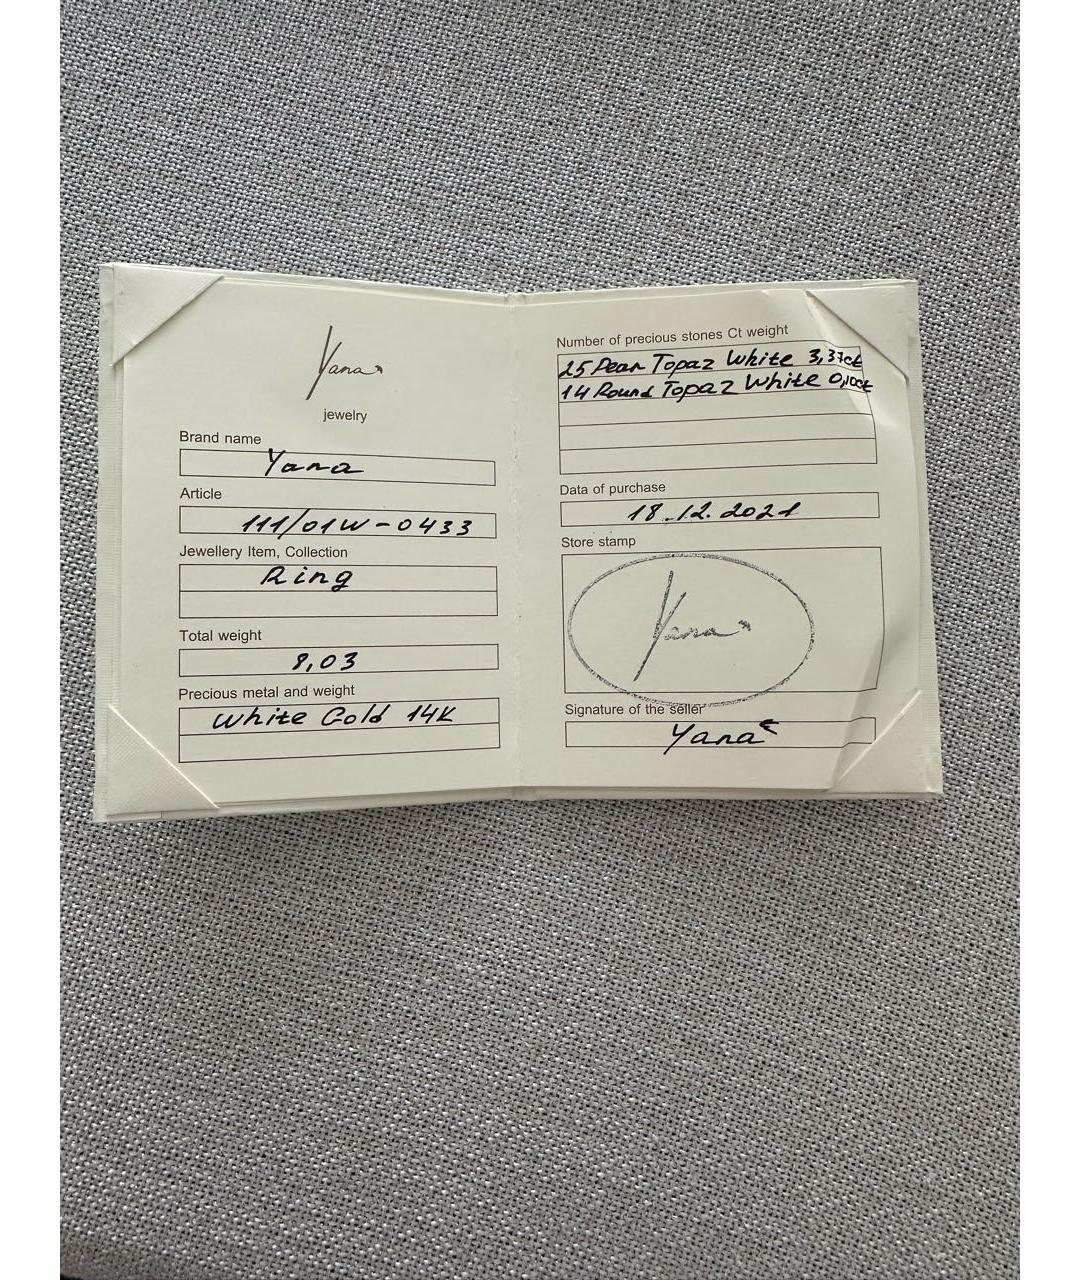 Yana
jewelry
Brand name
Yana
Article
111/01W-0433
Jewellery Item, Collection
Ring
Total weight
8,03
Precious metal and weight
White Gold 14K
Number of precious stones Ct weight
25 Pear Topaz White 3,37ct
14 Round Topaz White 0,10ct
Data of purchase
18.12.2021
Store stamp
Yana
Signature of the seller
Yana